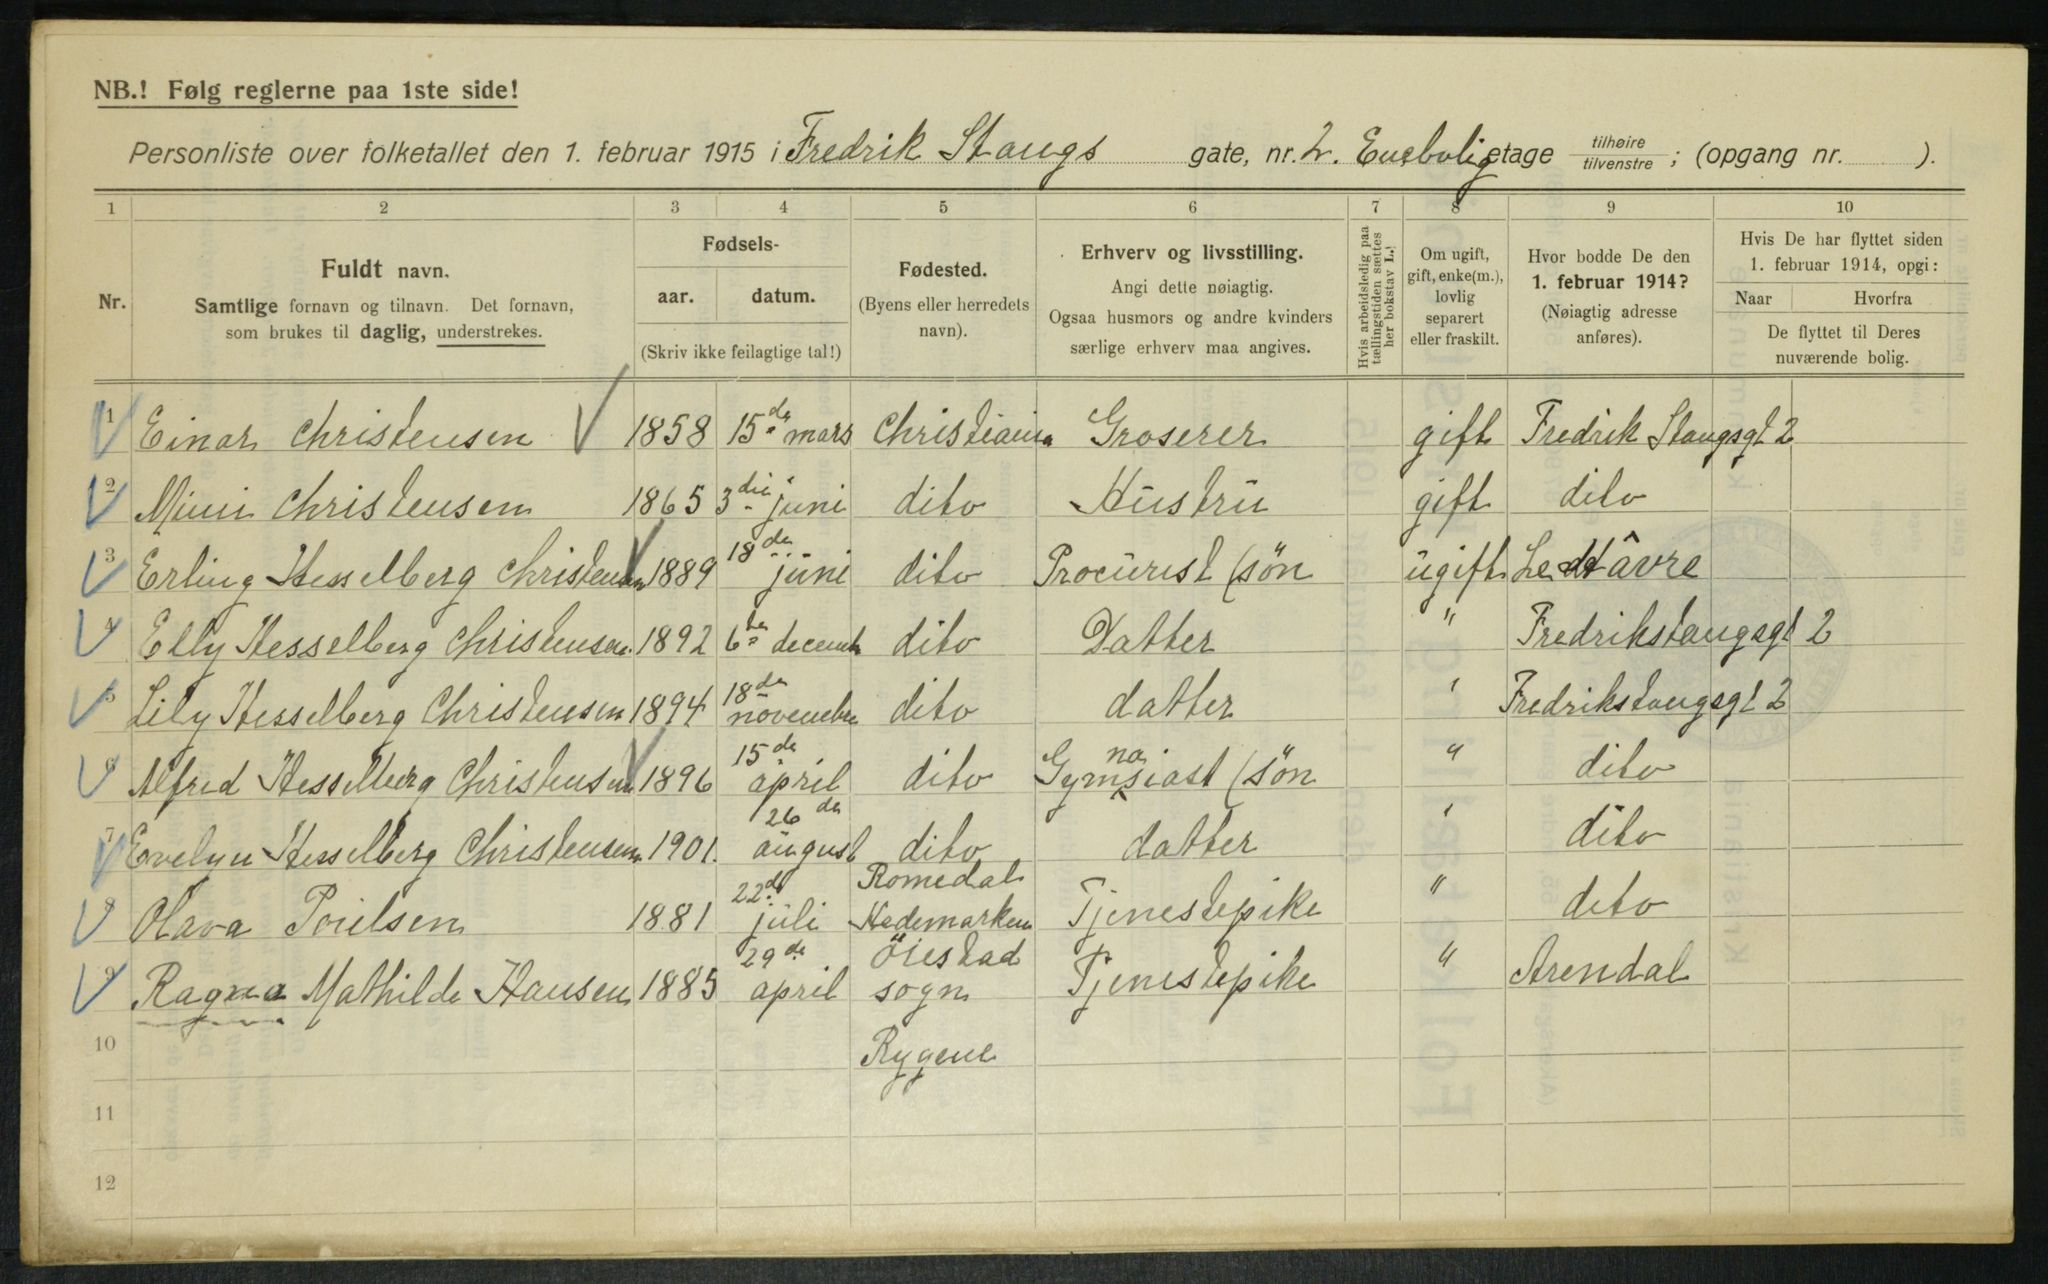 NB.! Følg reglerne paa 1ste side!
Personliste over folketallet den 1. februar 1915 i Fredrik Stangs gate, nr. 2. Enebolig etage tilhøire tilvenstre ; (opgang nr. ).
1 2 3 4 5 6 7 8 9 10
Nr. Fuldt navn. Samtlige fornavn og tilnavn. Det fornavn, som brukes til daglig, understrekes.
Fødsels- aar. datum. (Skriv ikke feilagtige tal!)
Fødested. (Byens eller herredets navn).
Erhverv og livsstilling. Angi dette nøiagtig. Ogsaa husmors og andre kvinders særlige erhverv maa angives.
Hvis arbeidsledig paa tællingstiden sættes her bokstav L.
Om ugift, gift, enke(m.), lovlig separert eller fraskilt.
Hvor bodde De den 1. februar 1914? (Nøiagtig adresse anføres).
Hvis De har flyttet siden 1. februar 1914, opgi: Naar Hvorfra De flyttet til Deres nuværende bolig.
1 Einar Christensen 1858 15de mars Christiania Groserer gift Fredrik Stangsgt 2
2 Mimi Christensen 1865 3die juni dito Hustru gift dito
3 Erling Hesselberg Christensen 1889 18de juni dito Procurist (søn ugift Le Hâvre
4 Elly Hesselberg Christensen. 1892 6te decemb dito Datter " Fredrikstangsgt 2
5 Lily Hesselberg Christensen 1894 18de novembre dito datter ' Fredrikstangsgt 2
6 Alfred Hesselberg Christensen 1896 15de april dito Gymnasiast (søn " dito
7 Evelyn Hesselberg Christensen 1901. 26de august dito datter ' dito
8 Olava Poulsen 1881 22de juli Romedal Hedemarken Tjenestepike " dito
9 Ragna Mathilde Hansen 1885 29de april Öiestad sogn Tjenestepike " Arendal
10 Rygene
11
12